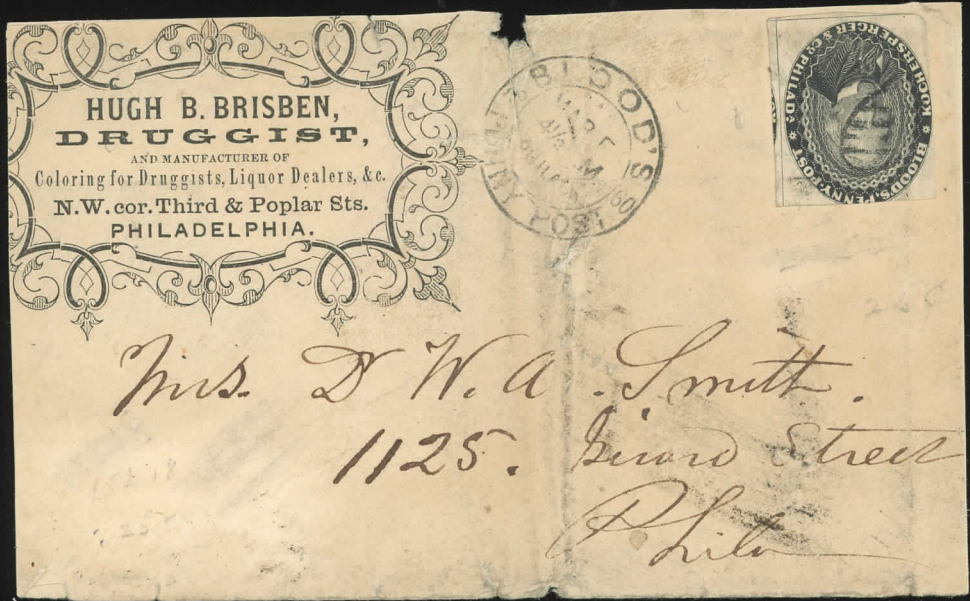 HUGH B. BRISBEN,
DRUGGIST,
AND MANUFACTURER OF
Coloring for Druggists, Liquor Dealers, &c.
N.W. cor. Third & Poplar Sts.
PHILADELPHIA.
BLOOD'S
PENNY POST
KOCHERSPERGER & CO. PHILADA.
BLOOD'S, PENNY, POST
Mrs. Dr W. A. Smith.
1125. Girard Street
Phila